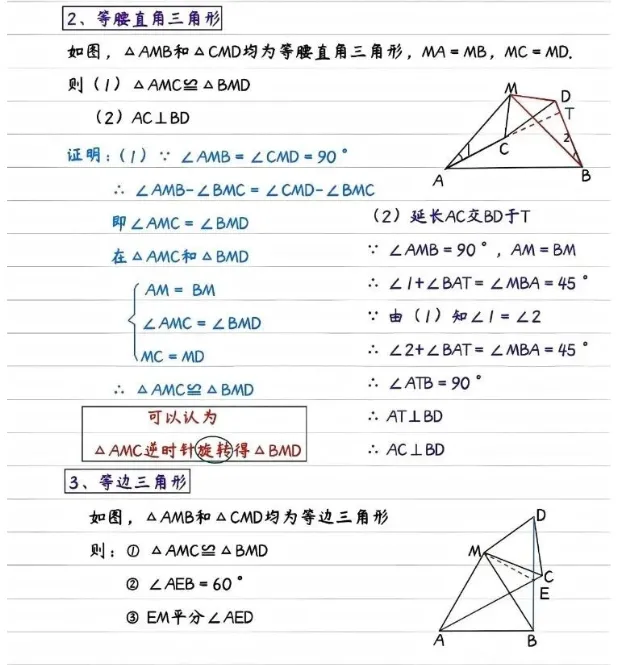 2、等腰直角三角形
如图，△AMB和△CMD均为等腰直角三角形，MA=MB，MC=MD.
则（1）△AMC≌△BMD
（2）AC⊥BD
M
D
T
1
C
2
A
B
证明：（1）∵ ∠AMB=∠CMD=90°
∴ ∠AMB-∠BMC=∠CMD-∠BMC
即∠AMC=∠BMD
在△AMC和△BMD
AM= BM
∠AMC=∠BMD
MC=MD
∴ △AMC≌△BMD
可以认为
△AMC逆时针旋转得△BMD
（2）延长AC交BD于T
∵ ∠AMB=90°，AM=BM
∴ ∠1+∠BAT=∠MBA=45°
∵ 由（1）知∠1=∠2
∴ ∠2+∠BAT=∠MBA=45°
∴ ∠ATB=90°
∴ AT⊥BD
∴ AC⊥BD
3、等边三角形
如图，△AMB和△CMD均为等边三角形
则：① △AMC≌△BMD
② ∠AEB=60°
③ EM平分∠AED
D
M
C
E
A
B